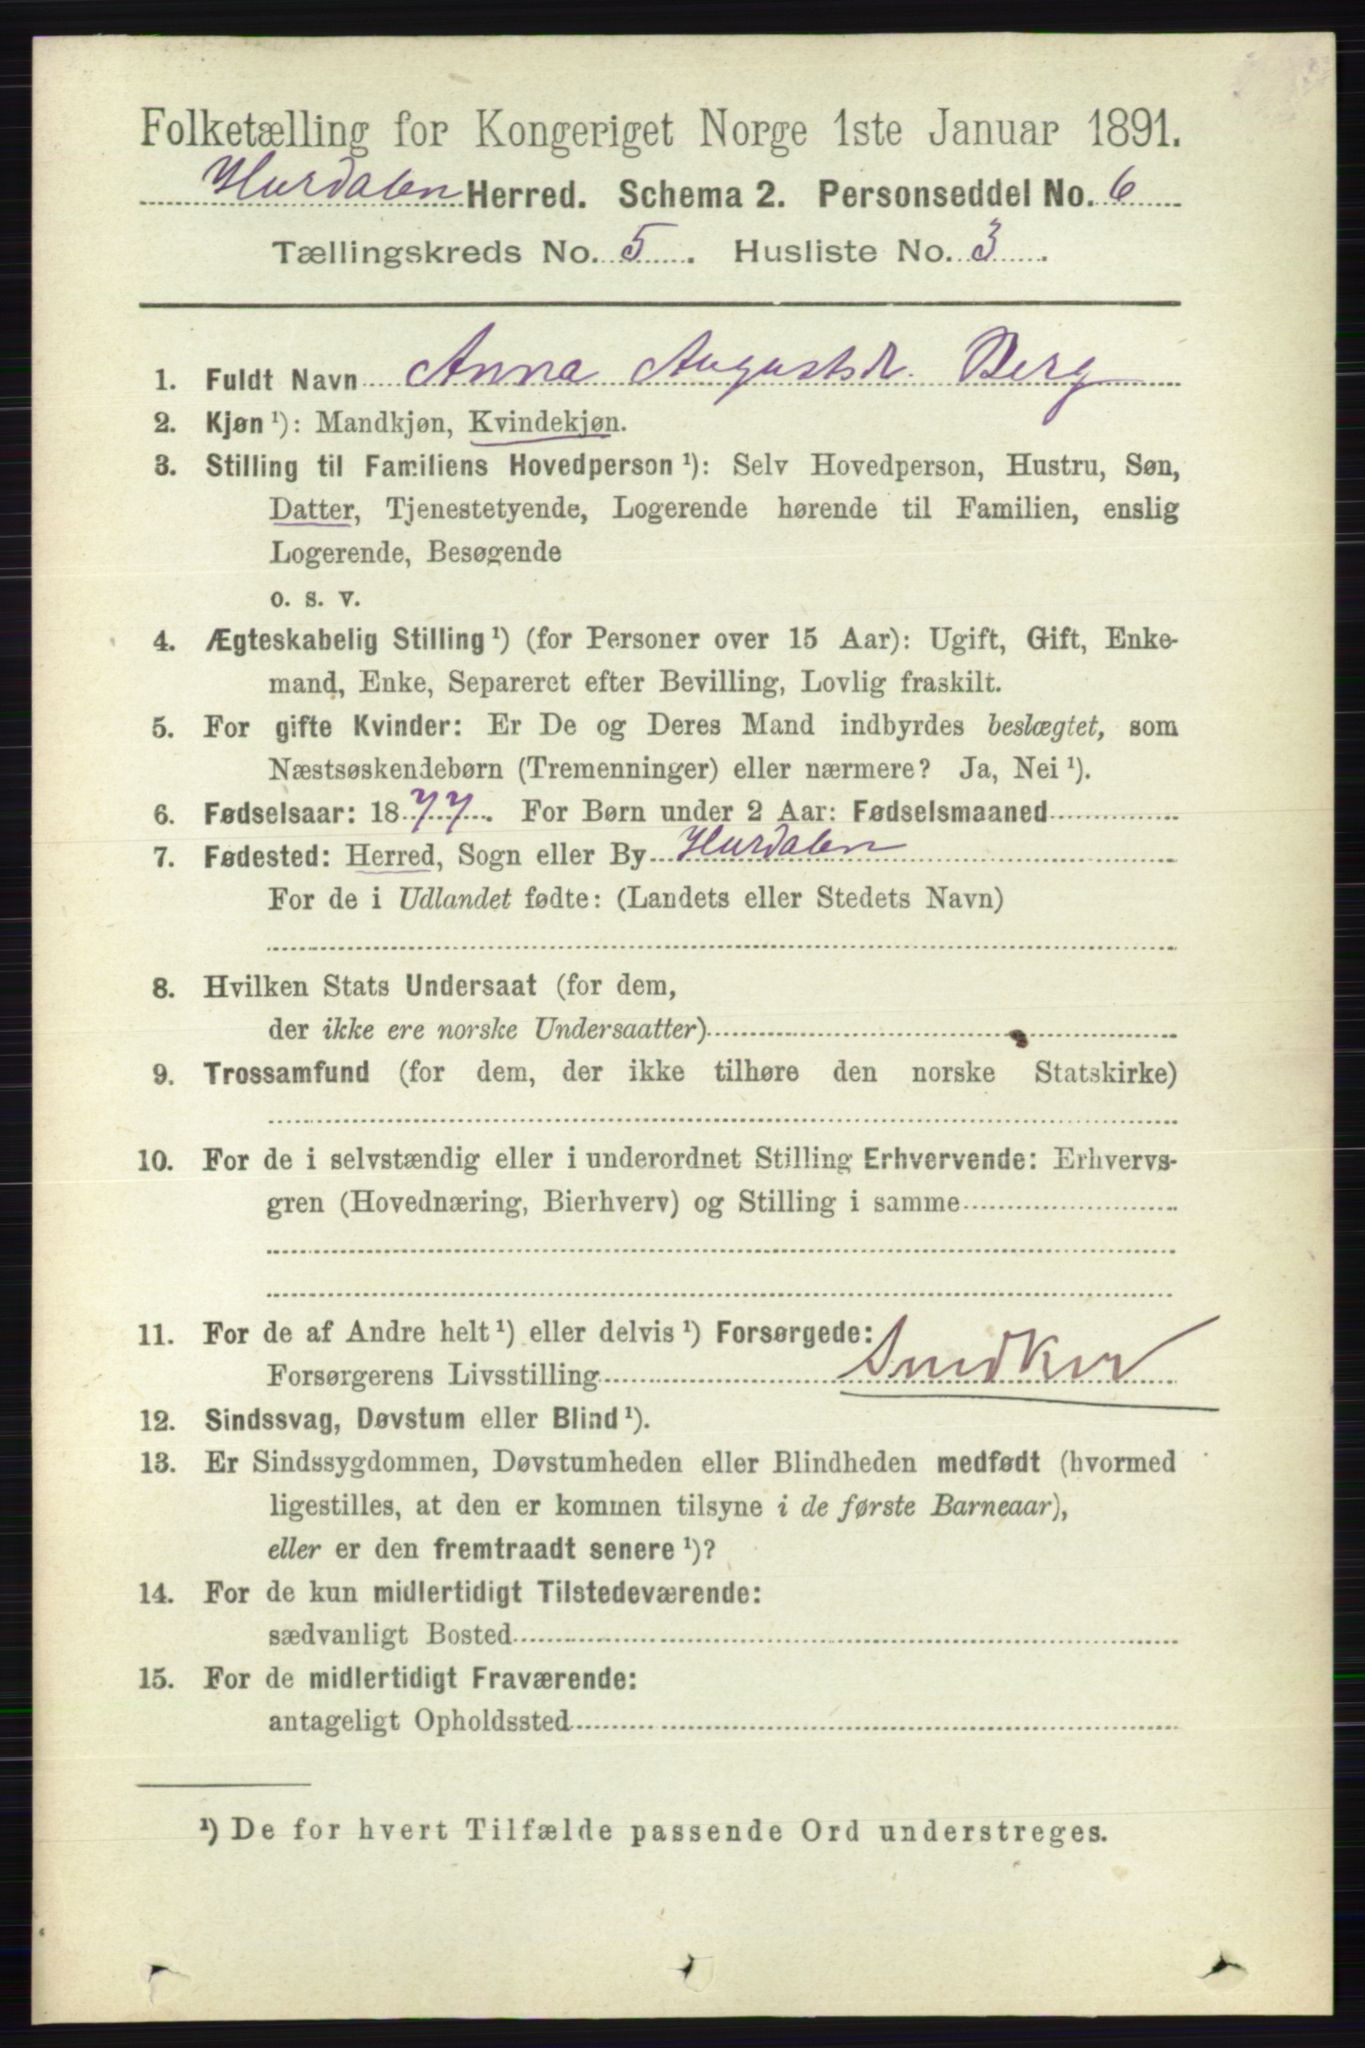 Folketælling for Kongeriget Norge 1ste Januar 1891.
Hurdalen Herred. Schema 2. Personseddel No. 6
Tællingskreds No. 5. Husliste No. 3.
1. Fuldt Navn Anna Augustdr. Berg
2. Kjøn ¹): Mandkjøn, Kvindekjøn.
3. Stilling til Familiens Hovedperson ¹): Selv Hovedperson, Hustru, Søn,
Datter, Tjenestetyende, Logerende hørende til Familien, enslig
Logerende, Besøgende
o. s. v.
4. Ægteskabelig Stilling ¹) (for Personer over 15 Aar): Ugift, Gift, Enke-
mand, Enke, Separeret efter Bevilling, Lovlig fraskilt.
5. For gifte Kvinder: Er De og Deres Mand indbyrdes beslægtet, som
Næstsøskendebørn (Tremenninger) eller nærmere? Ja, Nei ¹).
6. Fødselsaar: 1877. For Børn under 2 Aar: Fødselsmaaned
7. Fødested: Herred, Sogn eller By Hurdalen
For de i Udlandet fødte: (Landets eller Stedets Navn)
8. Hvilken Stats Undersaat (for dem,
der ikke ere norske Undersaatter)
9. Trossamfund (for dem, der ikke tilhøre den norske Statskirke)
10. For de i selvstændig eller i underordnet Stilling Erhvervende: Erhvervs-
gren (Hovednæring, Bierhverv) og Stilling i samme
11. For de af Andre helt ¹) eller delvis ¹) Forsørgede:
Forsørgerens Livsstilling Snedker
12. Sindssvag, Døvstum eller Blind ¹).
13. Er Sindssygdommen, Døvstumheden eller Blindheden medfødt (hvormed
ligestilles, at den er kommen tilsyne i de første Barneaar),
eller er den fremtraadt senere ¹)?
14. For de kun midlertidigt Tilstedeværende:
sædvanligt Bosted
15. For de midlertidigt Fraværende:
antageligt Opholdssted
¹) De for hvert Tilfælde passende Ord understreges.